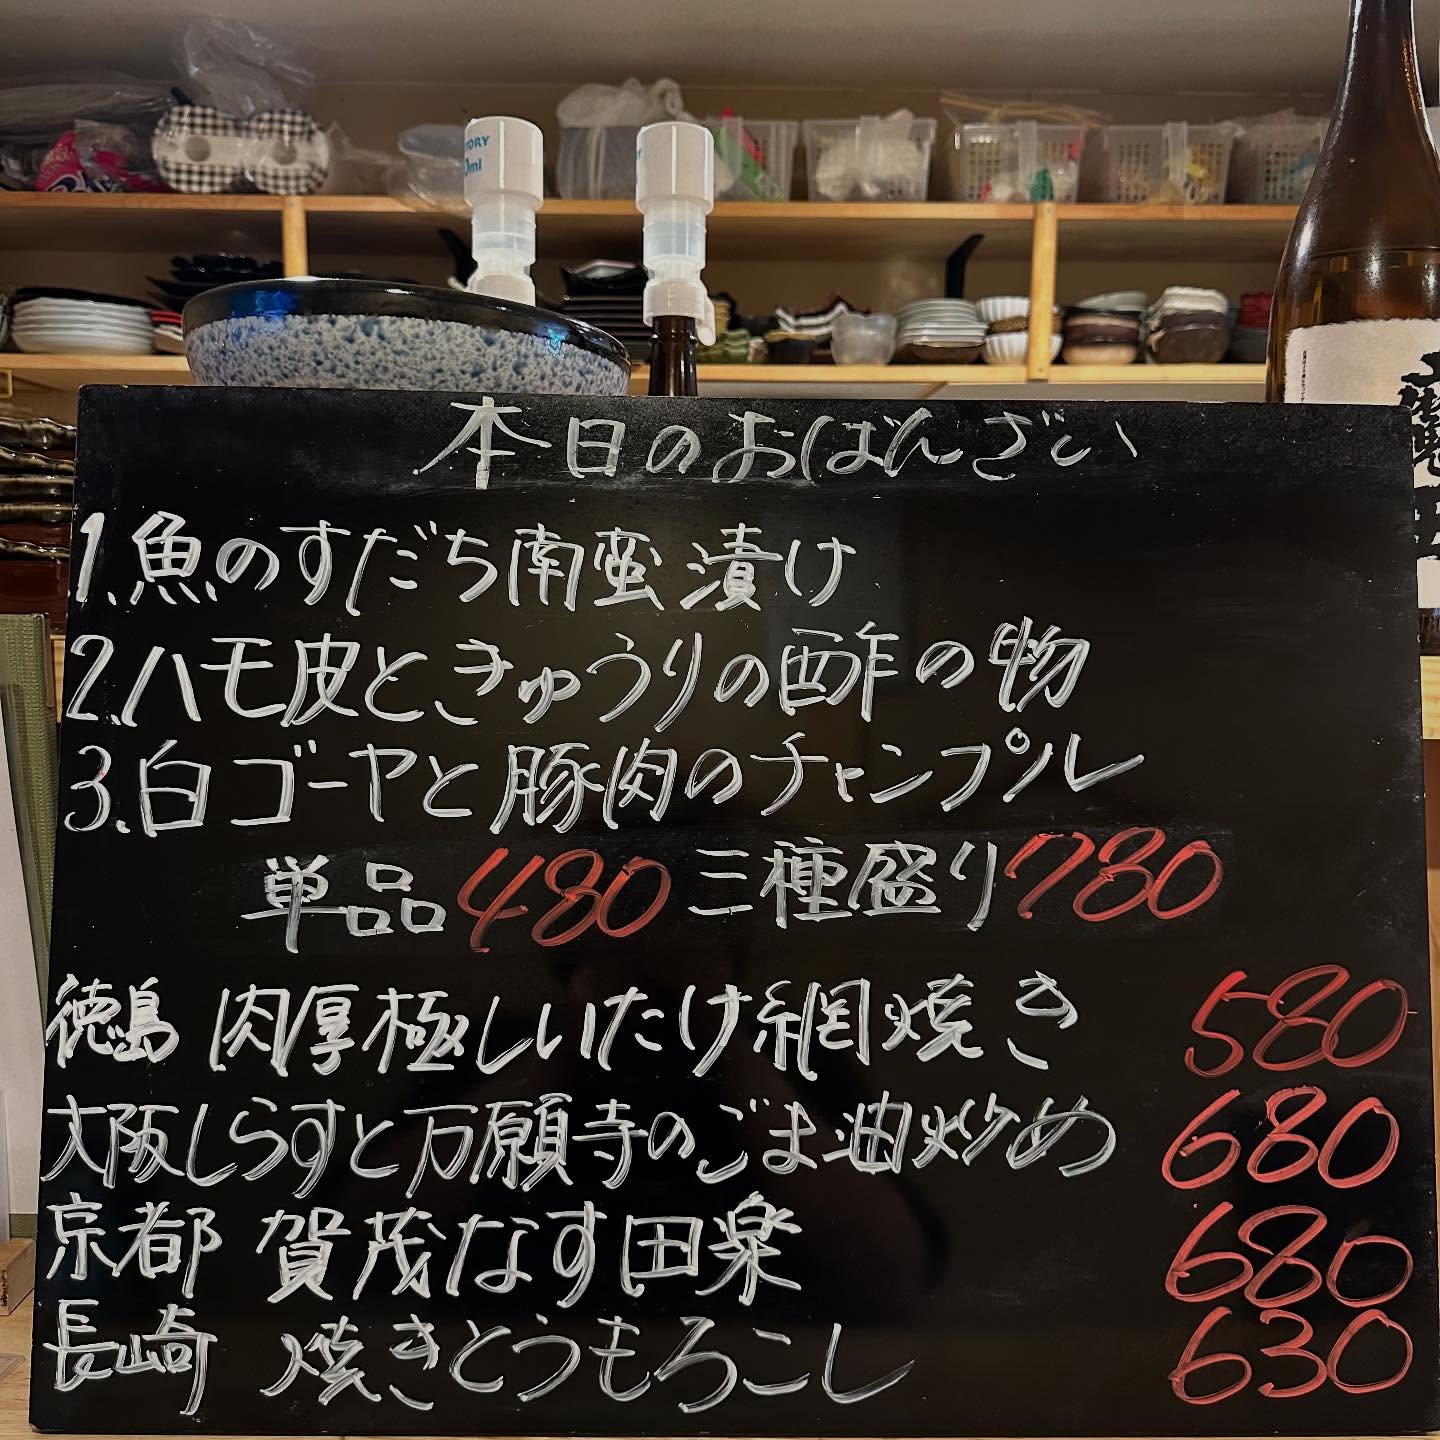 TORY
0ml
本日のおばんざい
1.魚のすだち南蛮漬け
2.ハモ皮ときゅうりの酢の物
3.白ゴーヤと豚肉のチャンプル
単品480 三種盛り780
徳島 肉厚極しいたけ網焼き 580
大阪しらすと万願寺のごま油炒め 680
京都 賀茂なす田楽 680
長崎 焼きとうもろこし 630